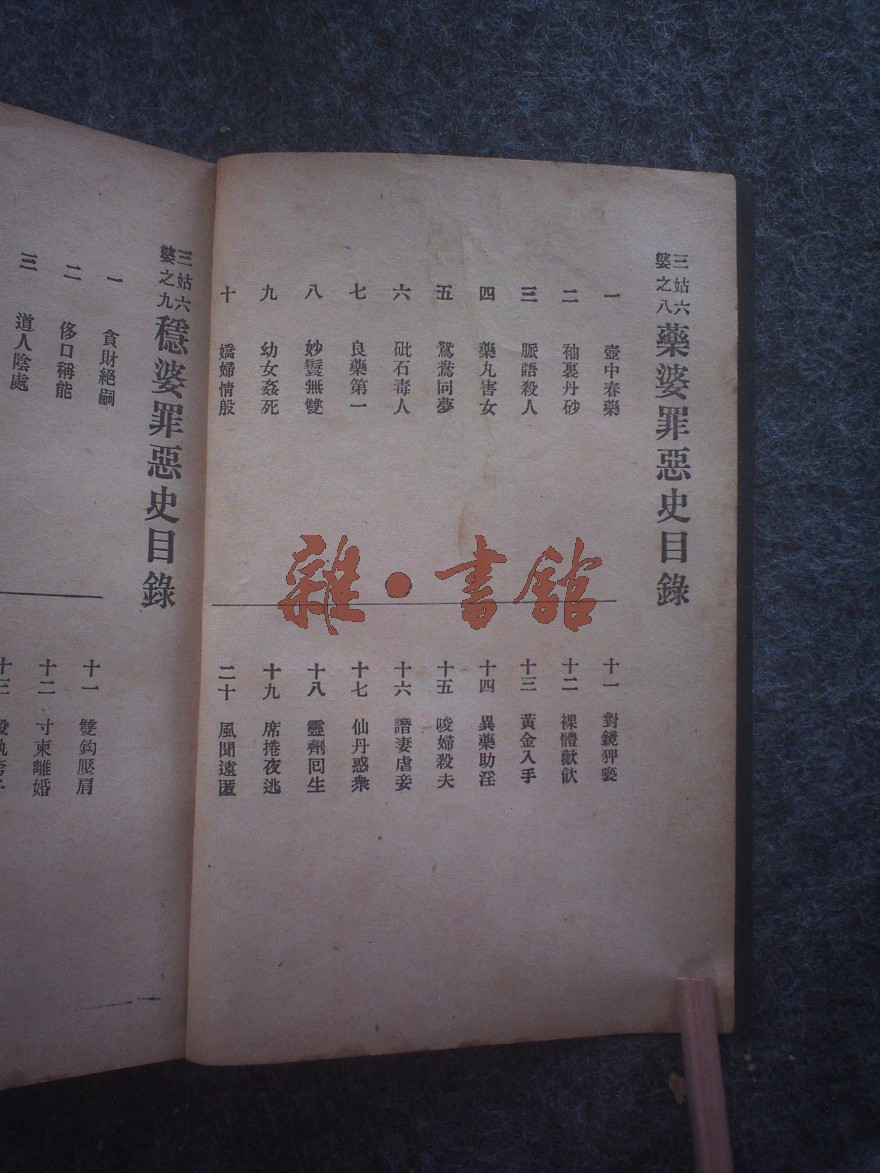 三姑六婆之八 藥婆罪惡史目錄
一 壺中春藥
二 秞裏丹砂
三 脈語殺人
四 藥丸害女
五 鴛鴦同夢
六 砒石毒人
七 良藥第一
八 妙鬘無雙
九 幼女姦死
十 嬌婦情殷
十一 對鏡狎褻
十二 裸體歡飲
十三 黃金入手
十四 異藥助淫
十五 唆婦殺夫
十六 譖妻虐妾
十七 仙丹惑衆
十八 靈劑囘生
十九 席捲夜逃
二十 風聞遠匿
三姑六婆之九 穩婆罪惡史目錄
一 貪財絕嗣
二 侈口稱能
三 道人陰處
十一 雙鈎壓肩
十二 寸柬離婚
十三
雜·書館